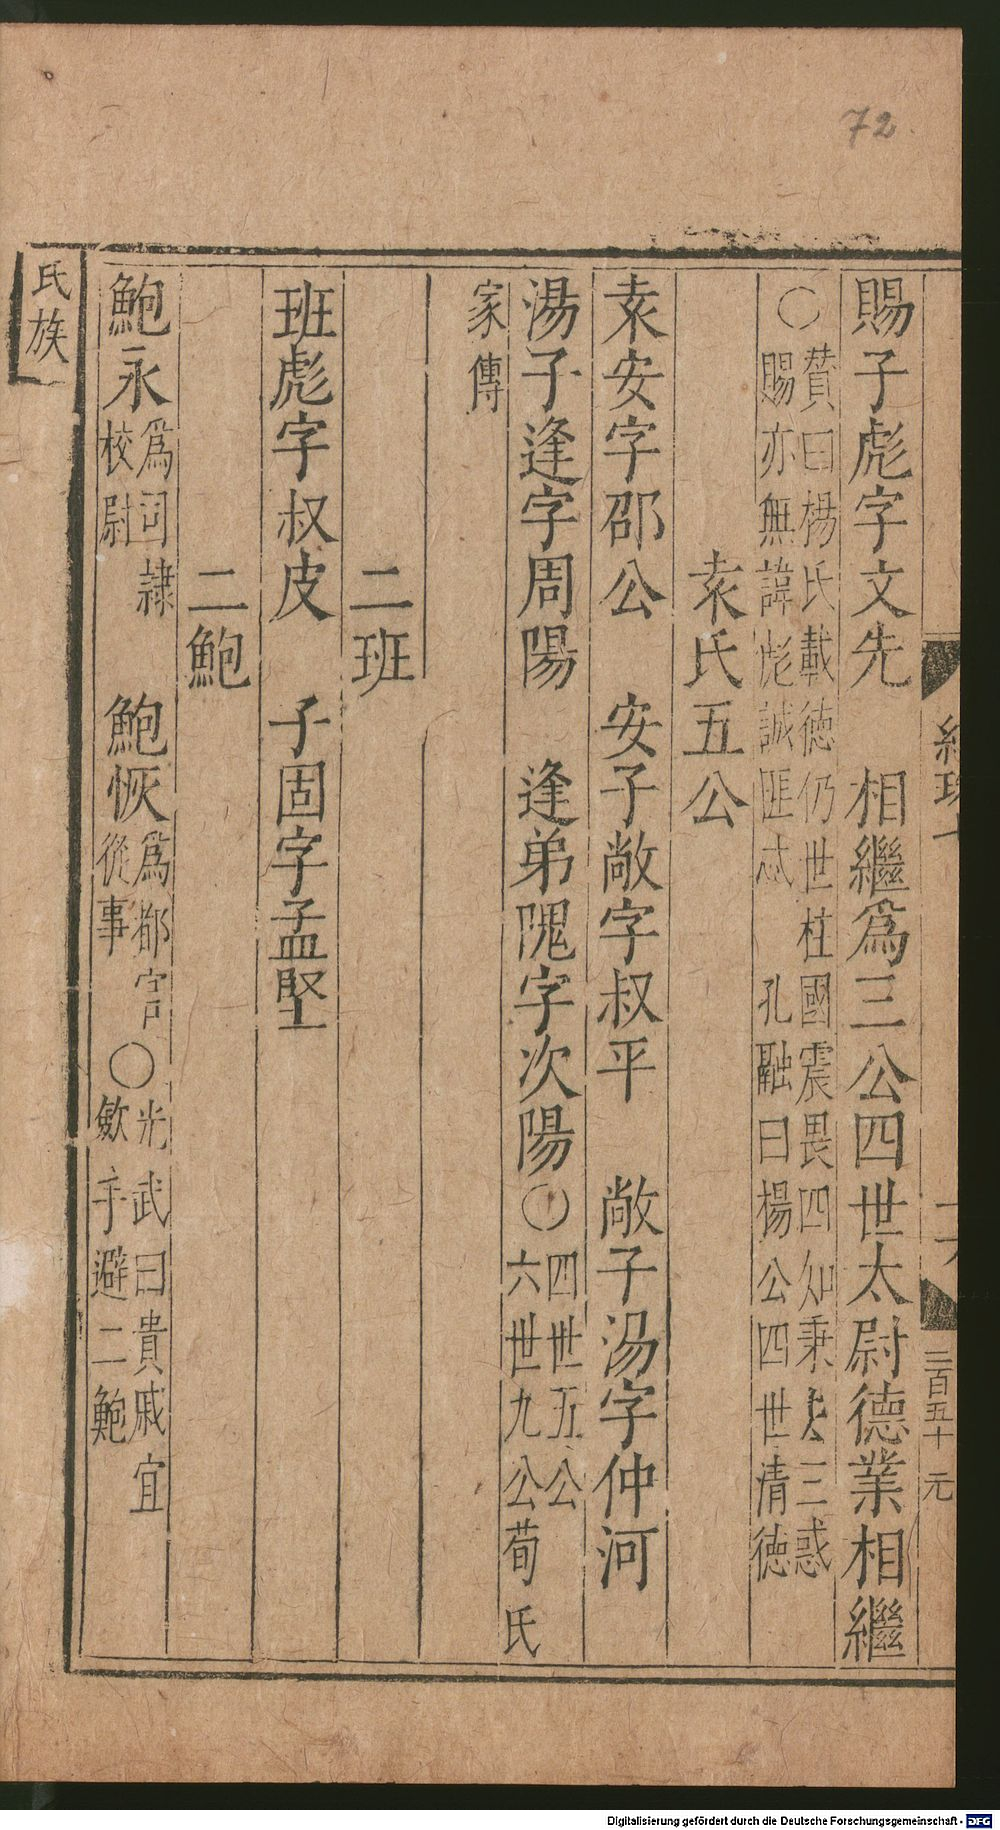 72
賜子彪字文先　相繼爲三公四世太尉德業相繼
〇贊曰楊氏載德仍世柱國震畏四知秉去三惑
賜亦無諱彪誠匪忒　孔融曰楊公四世清德
袁氏五公
袁安字邵公　安子敞字叔平　敞子湯字仲河
湯子逢字周陽　逢弟隗字次陽〇四世五公
六世九公荀氏
家傳
二班
班彪字叔皮　子固字孟堅
二鮑
鮑永爲司隸
校尉
鮑恢爲都官
從事
〇光武曰貴戚宜
斂手避二鮑
氏族
三百五十　元
Digitalisierung gefördert durch die Deutsche Forschungsgemeinschaft - DFG